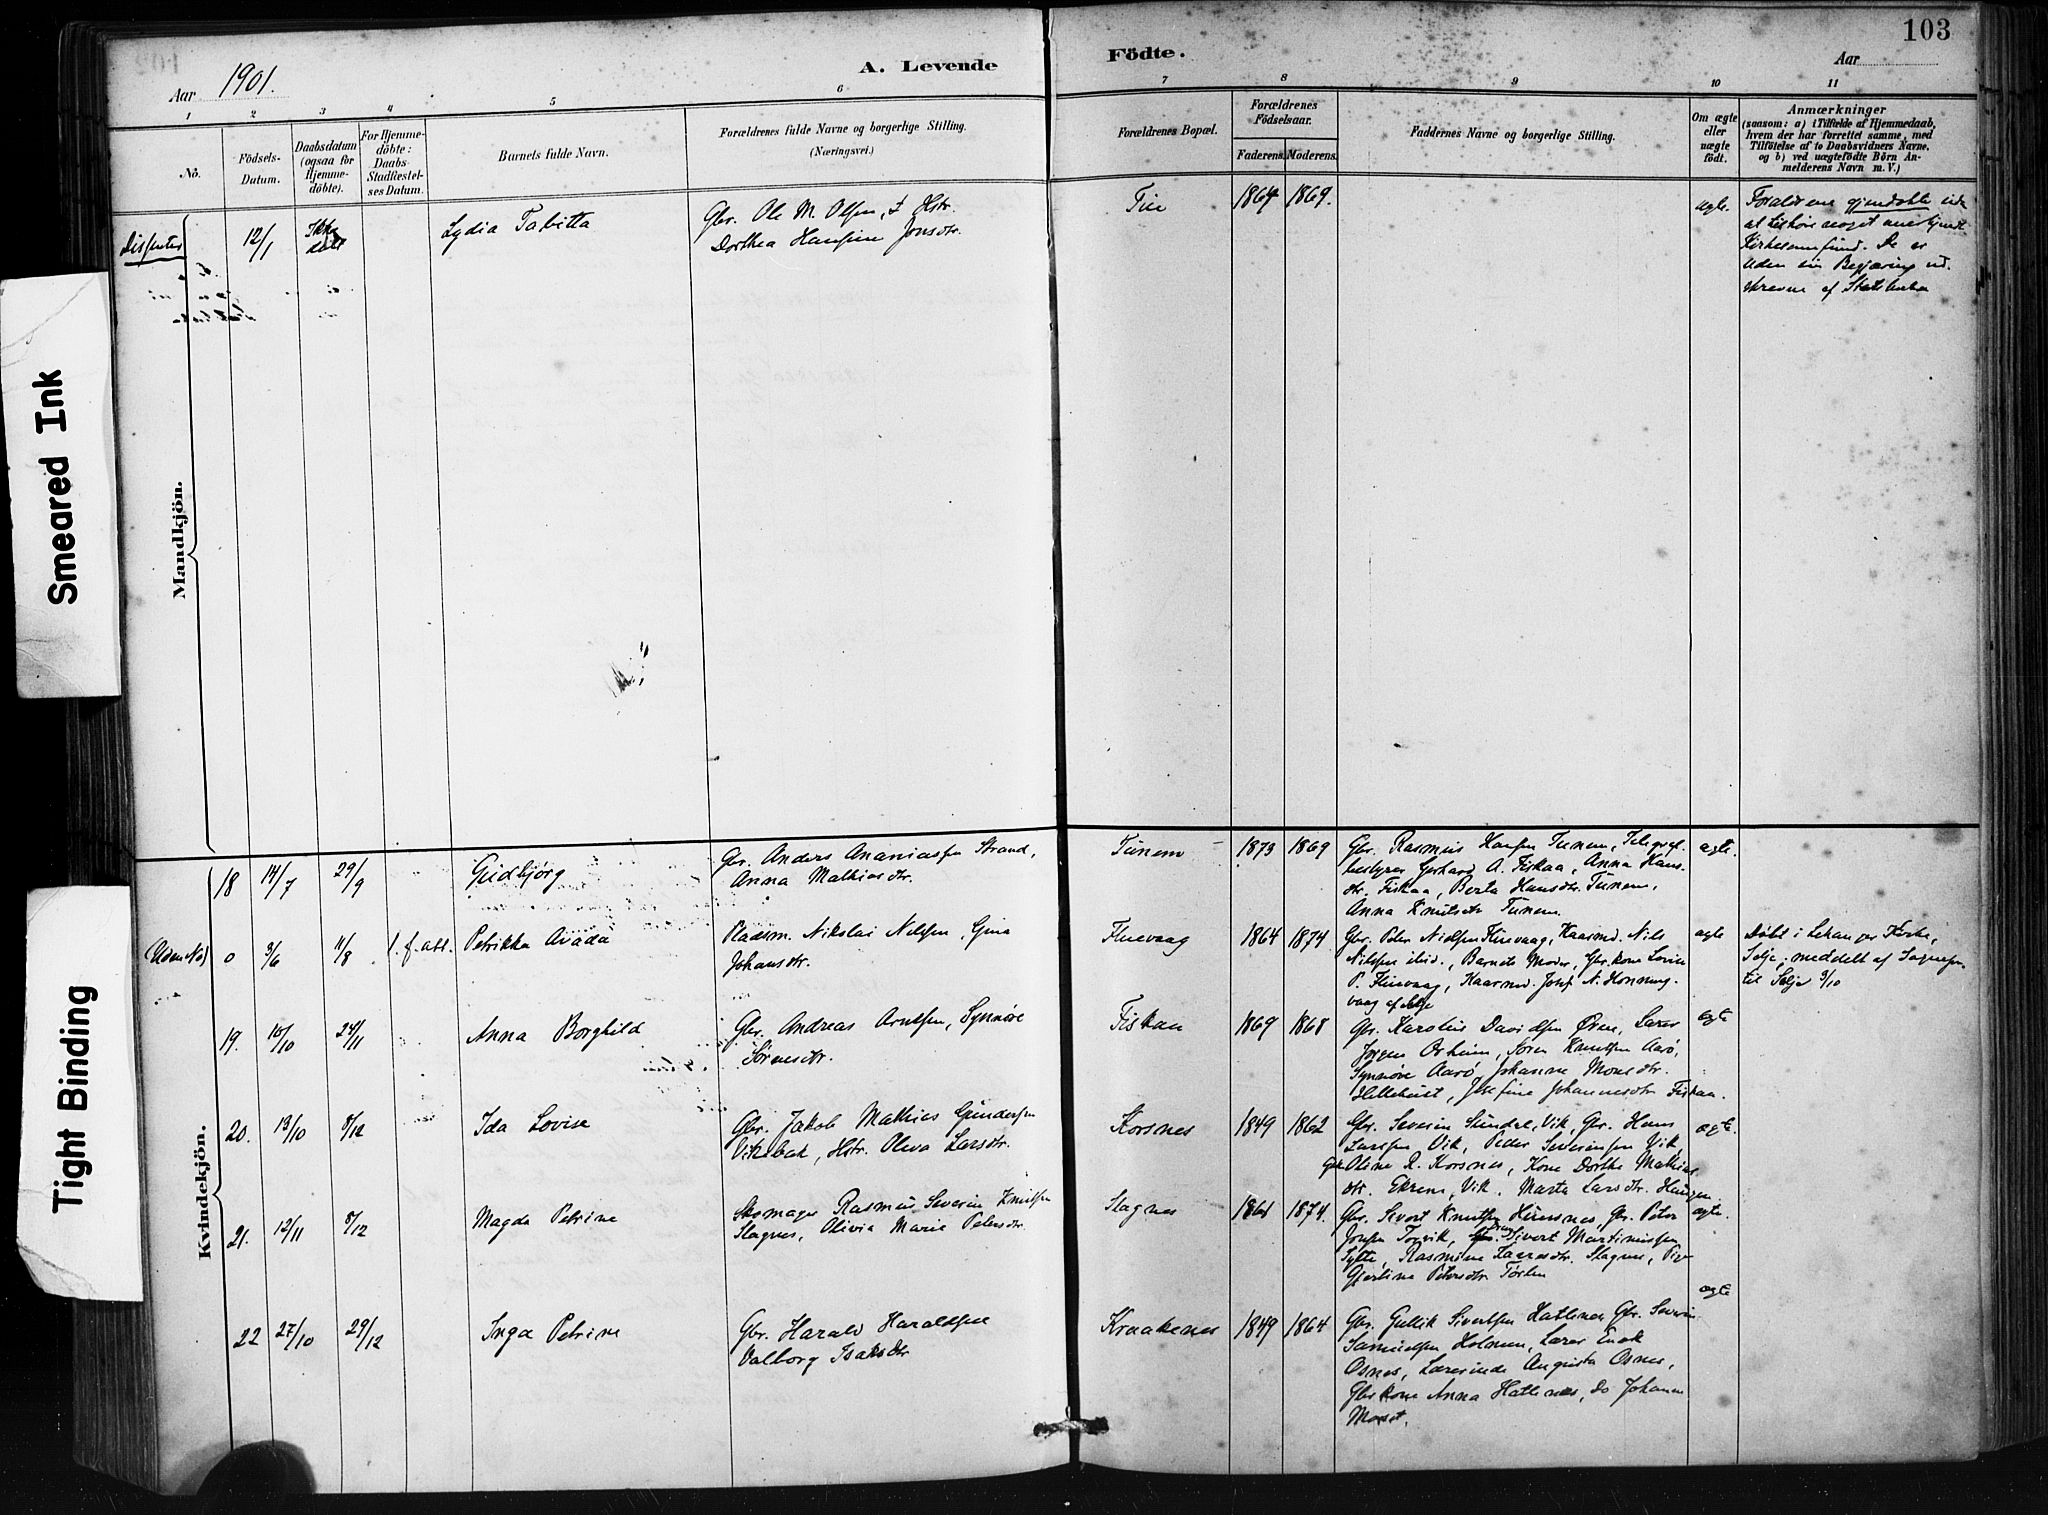 103
1901.
Aar
A. Levende
Födte.
Aar
1
2
3
4
5
6
7
8
9
10
11
No.
Födsels-
Datum.
Daabsdatum
(ogsaa for
Hjemme-
döbte).
For Hjemme-
döbte:
Daabs-
Stadfæstel-
ses Datum.
Barnets fulde Navn.
Forældrenes fulde Navne og borgerlige Stilling.
(Næringsvei.)
Forældrenes Bopæl.
Forældrenes
Födselsaar.
Faderens.
Moderens.
Faddernes Navne og borgerlige Stilling.
Om ægte
eller
uægte
födt.
Anmærkninger
(saasom: a) i Tilfælde af Hjemmedaab,
hvem der har forrettet samme, med
Tilföielse af to Daabsvidners Navne,
og b) ved uægtefödte Börn An-
melderens Navn m. V.)
Mandkjön.
12/1
Ikke
døbt
Lydia Tabitta
Gbr. Ole M. Olsen, Hstr.
Dorthea Hansine Jonsdtr.
1864
1869.
ægte.
Forældrene gjendøbte
at tilhøre noget anerkjendt
Kirkesamfund. De er
uden sin Begjæring ud-
skrevne af
Smeared Ink
Tight Binding
Kvindekjön.
18
14/7
29/9
Gidbjørg
Gbr. Anders Ananiassen Strand,
Anna Mathiasdtr.
Tunem
1873
1869
Gbr. Rasmus Hansen Tunem, Telegraf-
bestyrer Gerhard A. Fiskaa, Anna Hans-
dtr. Fiskaa, Berta Hansdtr. Tunem,
Anna Knutsdtr Tunem.
ægte.
(Uden No)
0
3/6
11/8
Petrikka Avada
Pladsm. Nikolai Nilssen, Gina
Johansdtr.
Fluevaag
1864
1874
Gbr. Peter Nielsen Fluevaag, Kaarmd. Nils
Nilssen ibid., Barnets Moder, Gbrkone Lovise
P. Fluevaag, Kaarmd. Josef N. Honnings-
vaag af Selje
ægte
Døbt i Kirke,
Selje; meddelt af Sognepr.
til Selje 3/10
19.
15/10
24/11
Anna Borghild
Gbr. Andreas Arntsen, Synnøve
Sørensdtr.
Fiskaa
1869
1868
Gbr. Karolus Davidsen Øren, Lærer
Jørgen Osheim, Søren Knutsen Aarø,
Synnøve Aarø, Johanne Monsdtr.
Hillehiest, Josefine Johannesdtr Fiskaa.
ægte
20.
13/10
8/12
Ida Lovise
Gbr. Jakob Mathias Gundersen
Vikebak, Hstr. Oliva Larsdtr.
Korsnes
1849
1862
Gbr. Severin Sundal, Vik, Gbr. Hans
Larssen Vik, Peder Severinsen Vik,
Oline R. Korsnes, Kone Dorthe Mathias-
dtr. Ekrem, Vik. Marta Larsdtr. Haugen
ægte.
21.
12/11
8/12
Magda Petrine
Skomager Rasmus Severin Knutsen
Slagnes, Olivia Marie Petersdtr.
Slagnes
1861
1874.
Gbr. Sivert Knutsen Huusnes, Gbr. Peter
Jonsen Torvik, Sivert Martinussen
Sytte, Rasmine Larsdtr. Slagnes, Pige
Gjertine Petersdtr Torlen
ægte.
22
27/10
29/12
Inga Petrine
Gbr. Harald Haraldsen
Valborg Isaksdtr
Kraakenes
1849
1864
Gbr. Gullik Sivertsen Hatlenes, Gbr. Severin
Samuelsen Holmen, Lærer Enok
Osnes, Lærerinde Augusta Osnes,
Gbrkone Anna Hatlenes, do Johanne
ægte